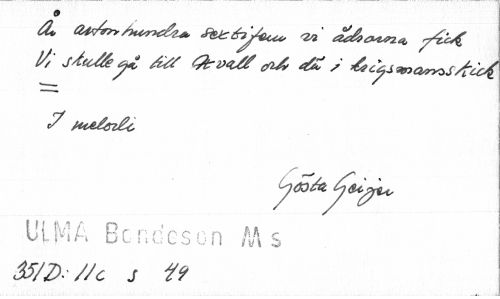 År artonhundra sextifem vi ådrorna fick
Vi skulle gå till Kvall och då i krigsmansskick
=
I melodi
Gösta Geijer
ULMA Bondeson Ms
351D: 11c s 49